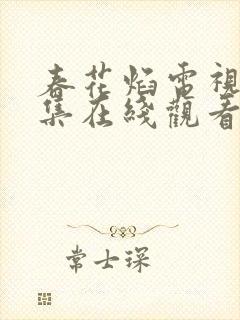 春花焰電視
集在綫觀看
常士琛